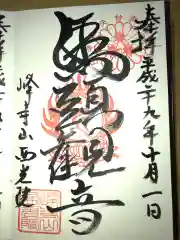 奉拝 平成二十九年十月一日
馬頭観音
峰寺山西光院